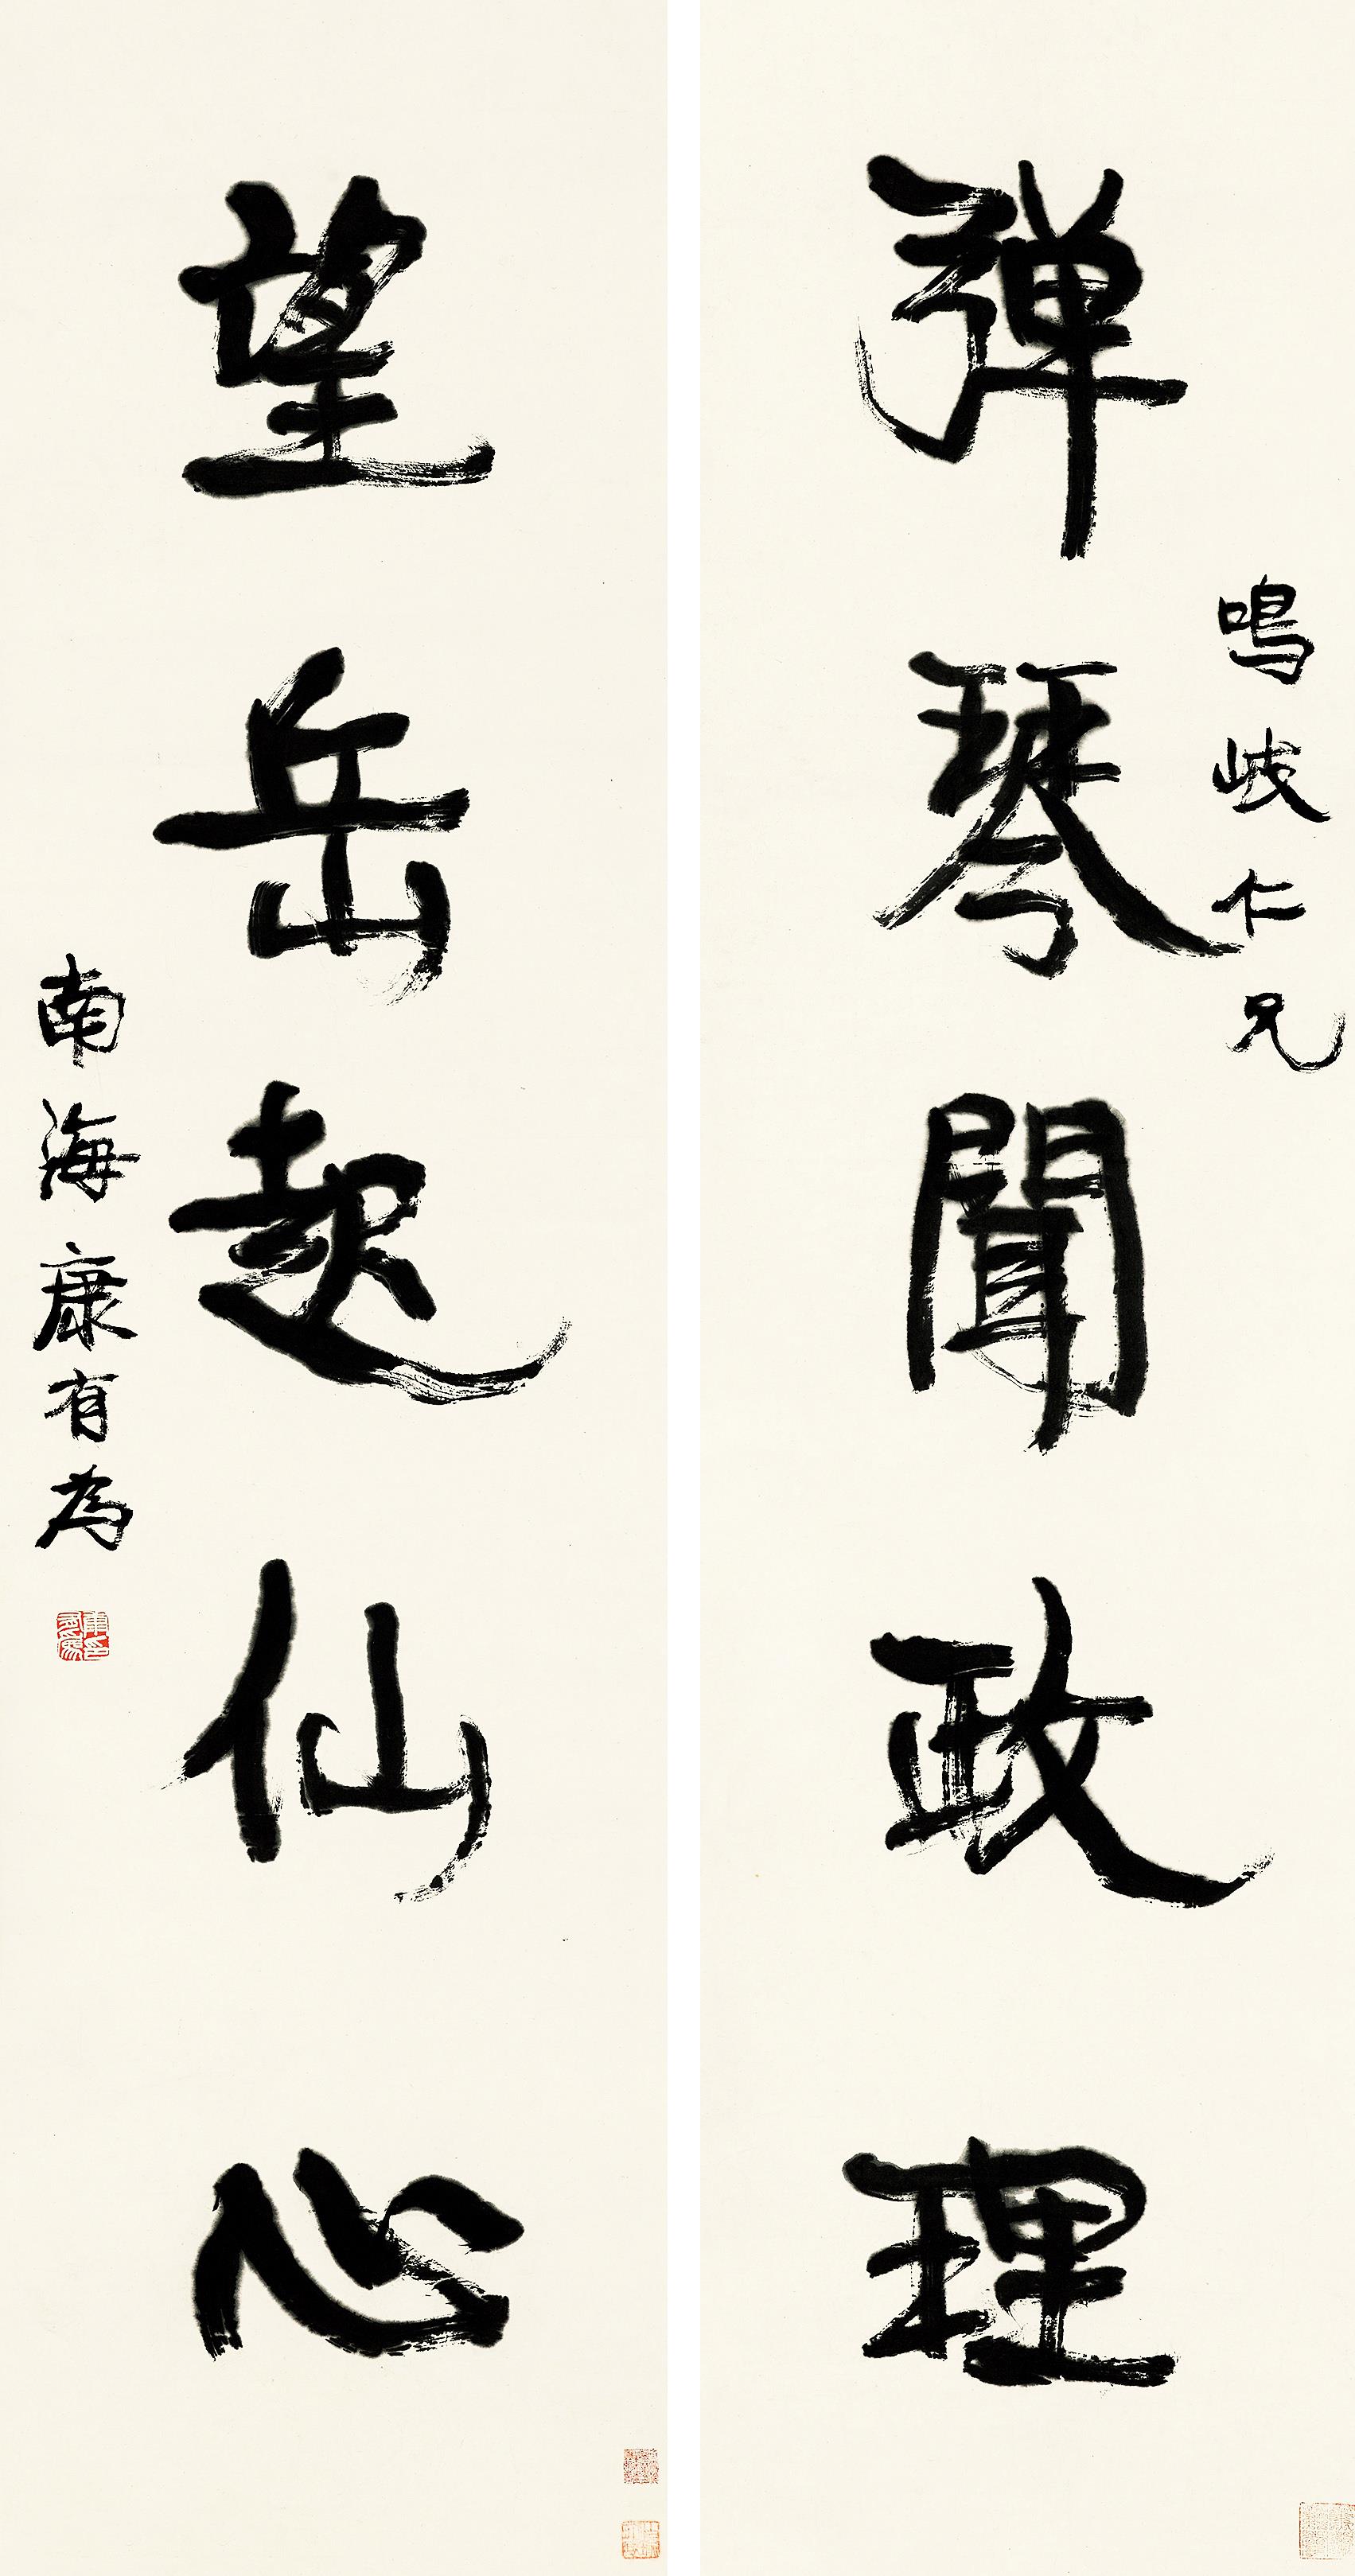 彈琴聞政理
鳴岐仁兄
望岳起仙心
南海康有為